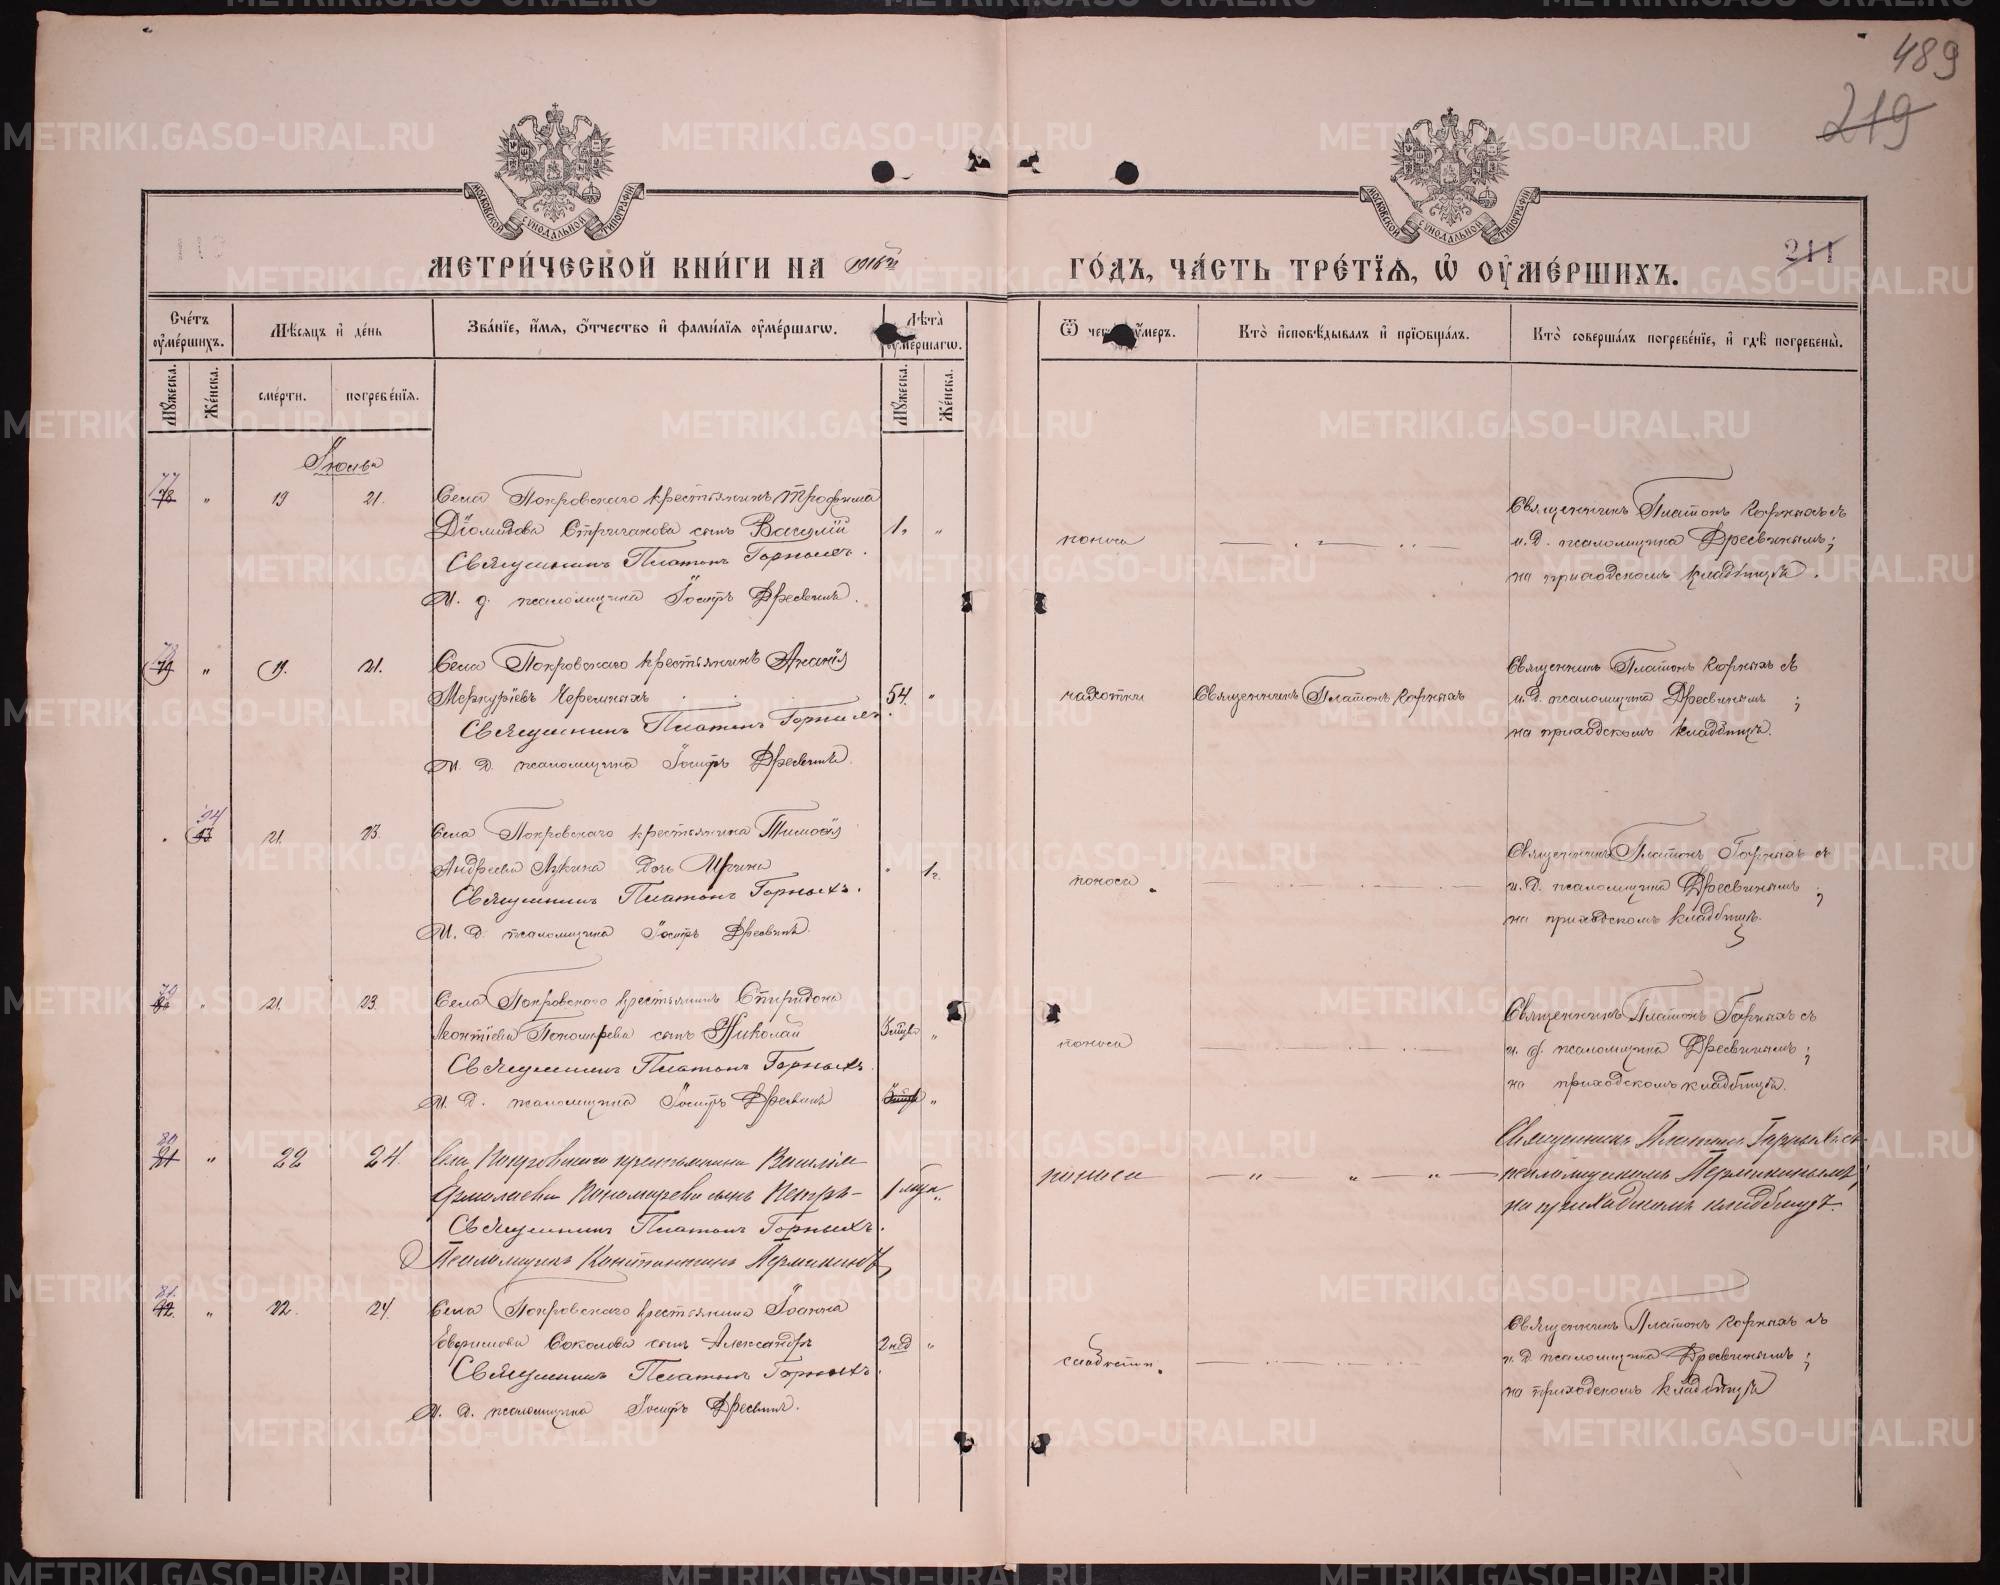 489
219
МОСКОВСКОЙ СУНОДАЛЬНОЙ ТИПОГРАФІИ
МОСКОВСКОЙ СУНОДАЛЬНОЙ ТИПОГРАФІИ
211
МЕТРИ́ЧЕСКОЙ КНИ́ГИ НА 1916й
ГО́ДЪ, ЧА́СТЬ ТРЕ́ТІѦ, Ѡ ОУМЕ́РШИХЪ.
Сче́тъ оуме́ршихъ.
Мѣ́сяцъ и де́нь
Зва́нїе, и́мя, о́тчество и фами́лїя оуме́ршагѡ.
Лѣта̀ оуме́ршагѡ.
Ѿ чегѡ̀ оу́меръ.
Кто̀ исповѣ́дывалъ и прїѡбща́лъ.
Кто̀ соверша́лъ погребе́нїе, и гдѣ̀ погребены̀.
Му́жеска.
Же́нска.
сме́рти.
погребе́нїя.
Му́жеска.
Же́нска.
Іюнь
77 78 " 19 21. Села Покровскаго крестьянинъ Трофима
Діомидова Стриганова сынъ Василій 1. "
Священникъ Платонъ Горныхъ.
И. д. псаломщика Іосифъ Дресвинъ.
поноса
Священникъ Платонъ Горныхъ съ
и. д. псаломщика Дресвинымъ;
на приходскомъ кладбищѣ.
78 79 " 19. 21. Села Покровскаго крестьянинъ Ананія
Меркуріевъ Черемныхъ 54. "
Священникъ Платонъ Горныхъ.
И. д. псаломщика Іосифъ Дресвинъ.
чахотки
Священникъ Платонъ Горныхъ
Священникъ Платонъ Горныхъ съ
и. д. псаломщика Дресвинымъ;
на приходскомъ кладбищѣ.
21. 23. Села Покровскаго крестьянина Тимофея
Андреева Лукина дочь Ирина " 1.
Священникъ Платонъ Горныхъ.
И. д. псаломщика Іосифъ Дресвинъ.
поноса.
Священникъ Платонъ Горныхъ съ
и. д. псаломщика Дресвинымъ;
на приходскомъ кладбищѣ.
79 80 " 21. 23. Села Покровскаго крестьянинъ Спиридона
Леонтіева Пономарева сынъ Николай "
Священникъ Платонъ Горныхъ.
И. д. псаломщика Іосифъ Дресвинъ "
поноса
Священникъ Платонъ Горныхъ съ
и. д. псаломщика Дресвинымъ;
на приходскомъ кладбищѣ.
80 81 " 22 24. Села Покровскаго крестьянина Василія
Ермолаева Пономарева сынъ Петръ "
Священникъ Платонъ Горныхъ.
Псаломщикъ Константинъ Пермикинъ
поноса
Священникъ Платонъ Горныхъ съ
псаломщикомъ Пермикинымъ;
на приходскомъ кладбищѣ.
81. 82. " 22. 24. Села Покровскаго крестьянина Іоанна
Евфимова Соколова сынъ Александръ 2 нед "
Священникъ Платонъ Горныхъ.
И. д. псаломщика Іосифъ Дресвинъ.
слабости.
Священникъ Платонъ Горныхъ съ
и. д. псаломщика Дресвинымъ;
на приходскомъ кладбищѣ
METRIKI.GASO-URAL.RU